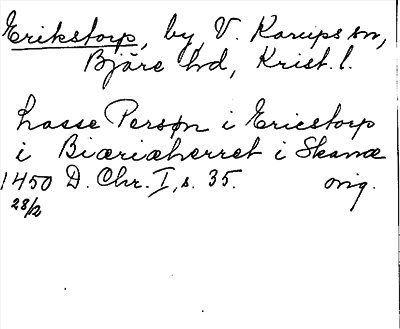 Erikstorp, by, V. Karups sn,
Bjäre hd, Krist. l.
Lasse Persøn i Ericstorp
i Biæriæherret i Skanæ
1450 D. Chr. I, s. 35. orig.
28/2